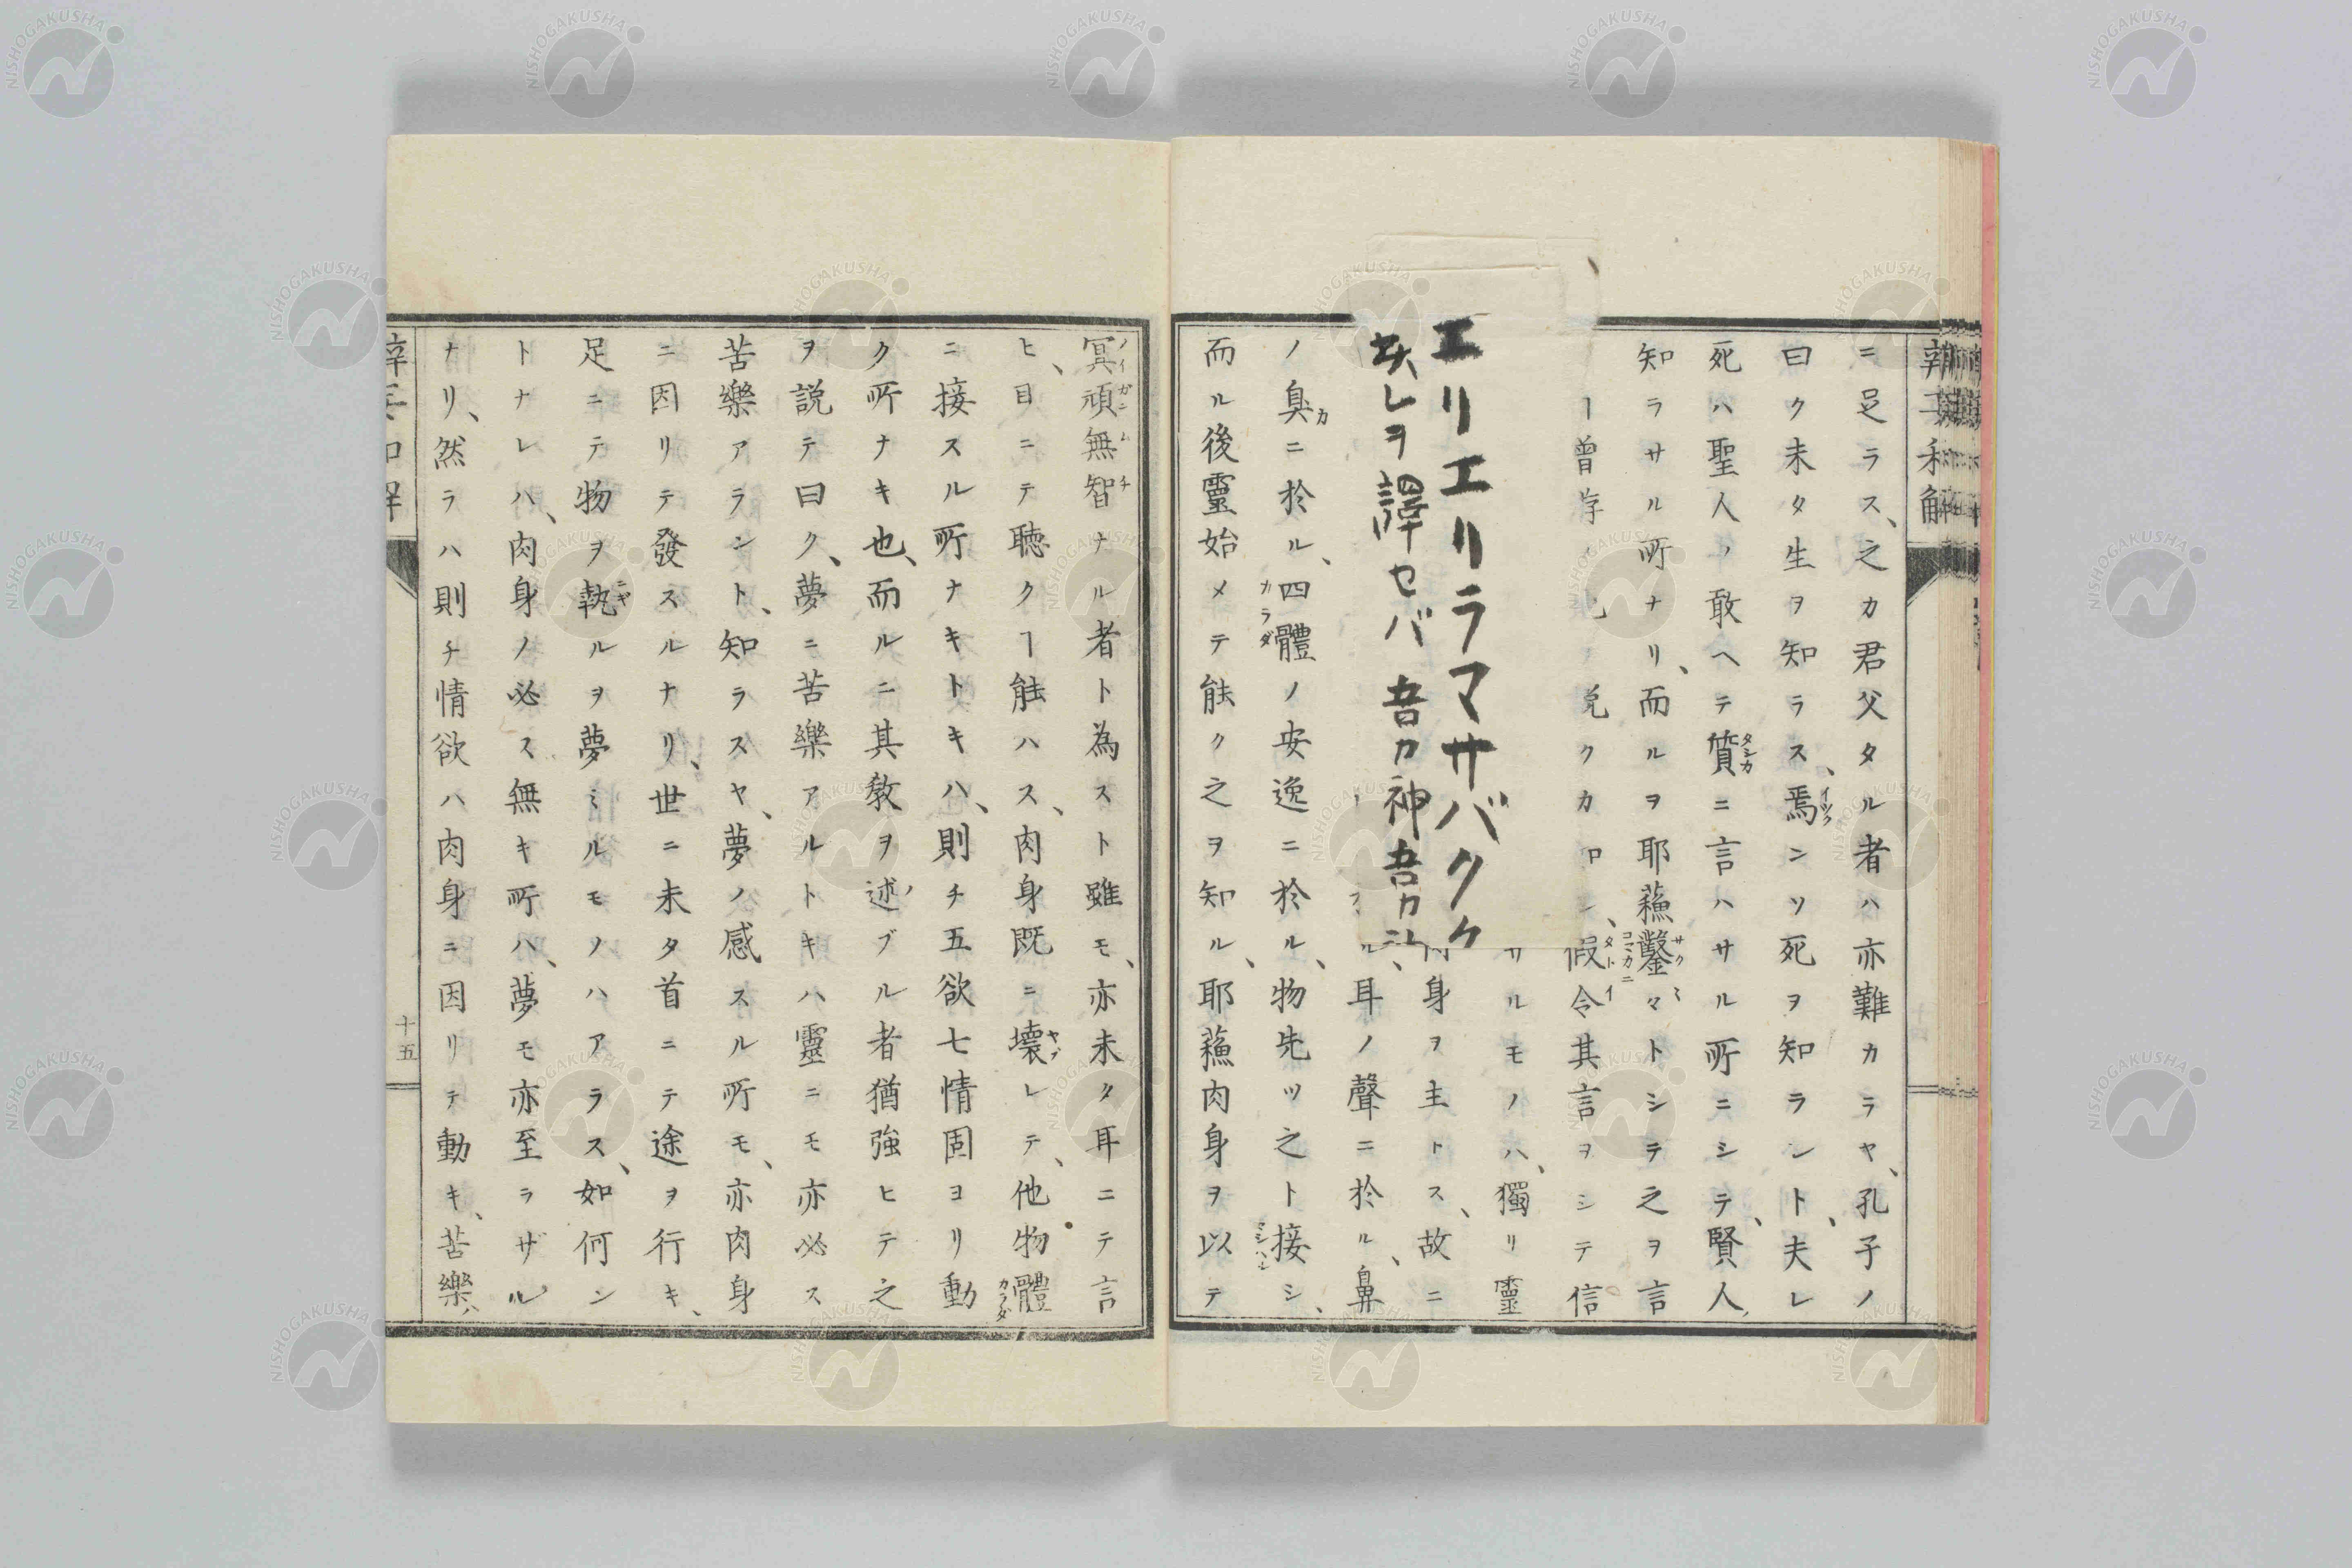 ニ足ラス、之カ君父タル者ハ亦難カラヤ、孔子ノ
曰ク未タ生ヲ知ラス、焉ンソ死ヲ知ラント、夫レ
イツク
死ハ聖人ノ敢ヘテ質ニ言ハサル所ニシテ、賢人、
タシカ
知ラサル所ナリ、而ルヲ耶蘓鑿々トシテ之ヲ言
サクミ
コマカニ
ヿ曾
説クカ
假令其言ヲシテ信
タトイ
サルモノハ、獨リ靈
身ヲ主トス、故ニ
ル、耳ノ聲ニ於ル、鼻
エリエリラマサバクク
レヲ譯セバ吾カ神吾カ
ノ臭ニ於ル、四體ノ安逸ニ於ル、物先ツ之ト接シ、
カ
カラダ
而ル後靈始メテ能ク之ヲ知ル、耶蘓肉身ヲ以テ
冥頑無智ナル者ト為スト雖モ、亦未タ耳ニテ言
ヒ、目ニテ聴クヿ能ハス、肉身既ニ壊レテ、他物體
ヤブ
カラダ
ニ接スル所ナキトキハ、則チ五欲七情固ヨリ動
ク所ナキ也、而ルニ其教ヲ述ブル者猶強ヒテ之
ヲ説テ曰ク、夢ニ苦樂アルトキハ靈ニモ亦必ス
苦樂アラント、知ラスヤ、夢ノ感スル所モ、亦肉身
ニ因リテ發スルナリ、世ニ未タ首ニテ途ヲ行キ、
足ニテ物ヲ執ルヲ夢ミルモノハアラス、如何ン
ニギ
トナレハ、肉身ノ必ス無キ所ハ、夢モ亦至ラザル
ナリ、然ラハ則チ情欲ハ肉身ニ因リテ動キ、苦樂ハ
十五
NISHOGAKUSHA